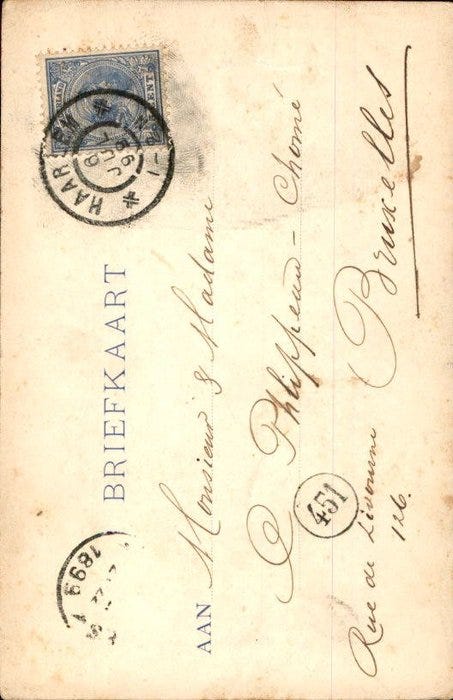 HAARLEM
BRIEFKAART
1899
AAN Monsieur & Madame
C Philippeau - Chomé
451
Bruxelles
Rue de Livourne
126.